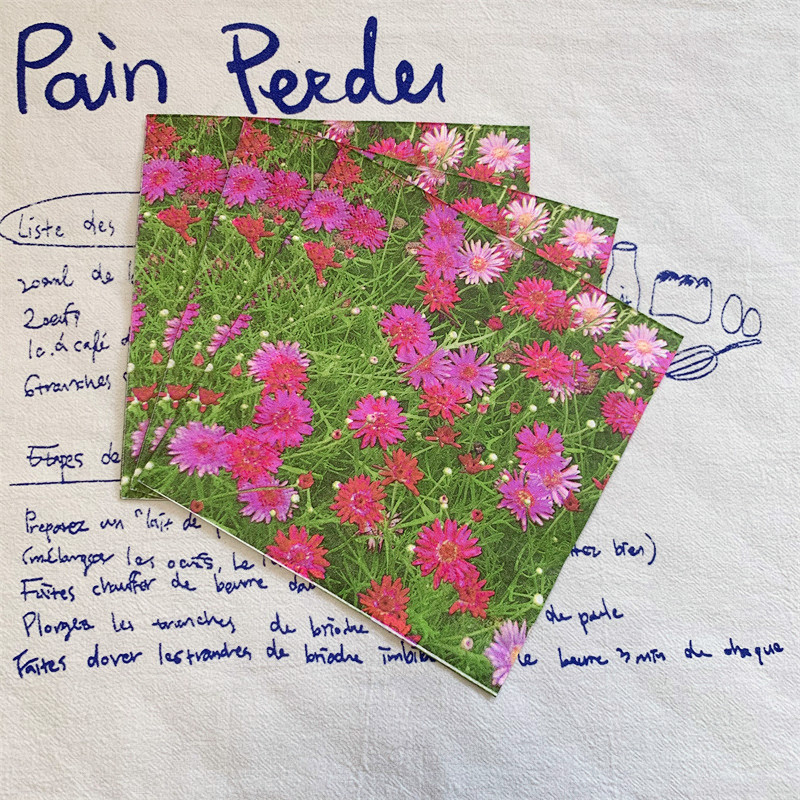 Pain Perdu
Liste des
200ml de
2 oeufs
1c. à café
6 tranches
Etapes de
Preparez un "lait de
(mélanger les oeufs, le bien)
Faites chauffer de beurre
Plongez les tranches de brioche de
Faites dorer les tranches de brioche beurre 3 min de chaque